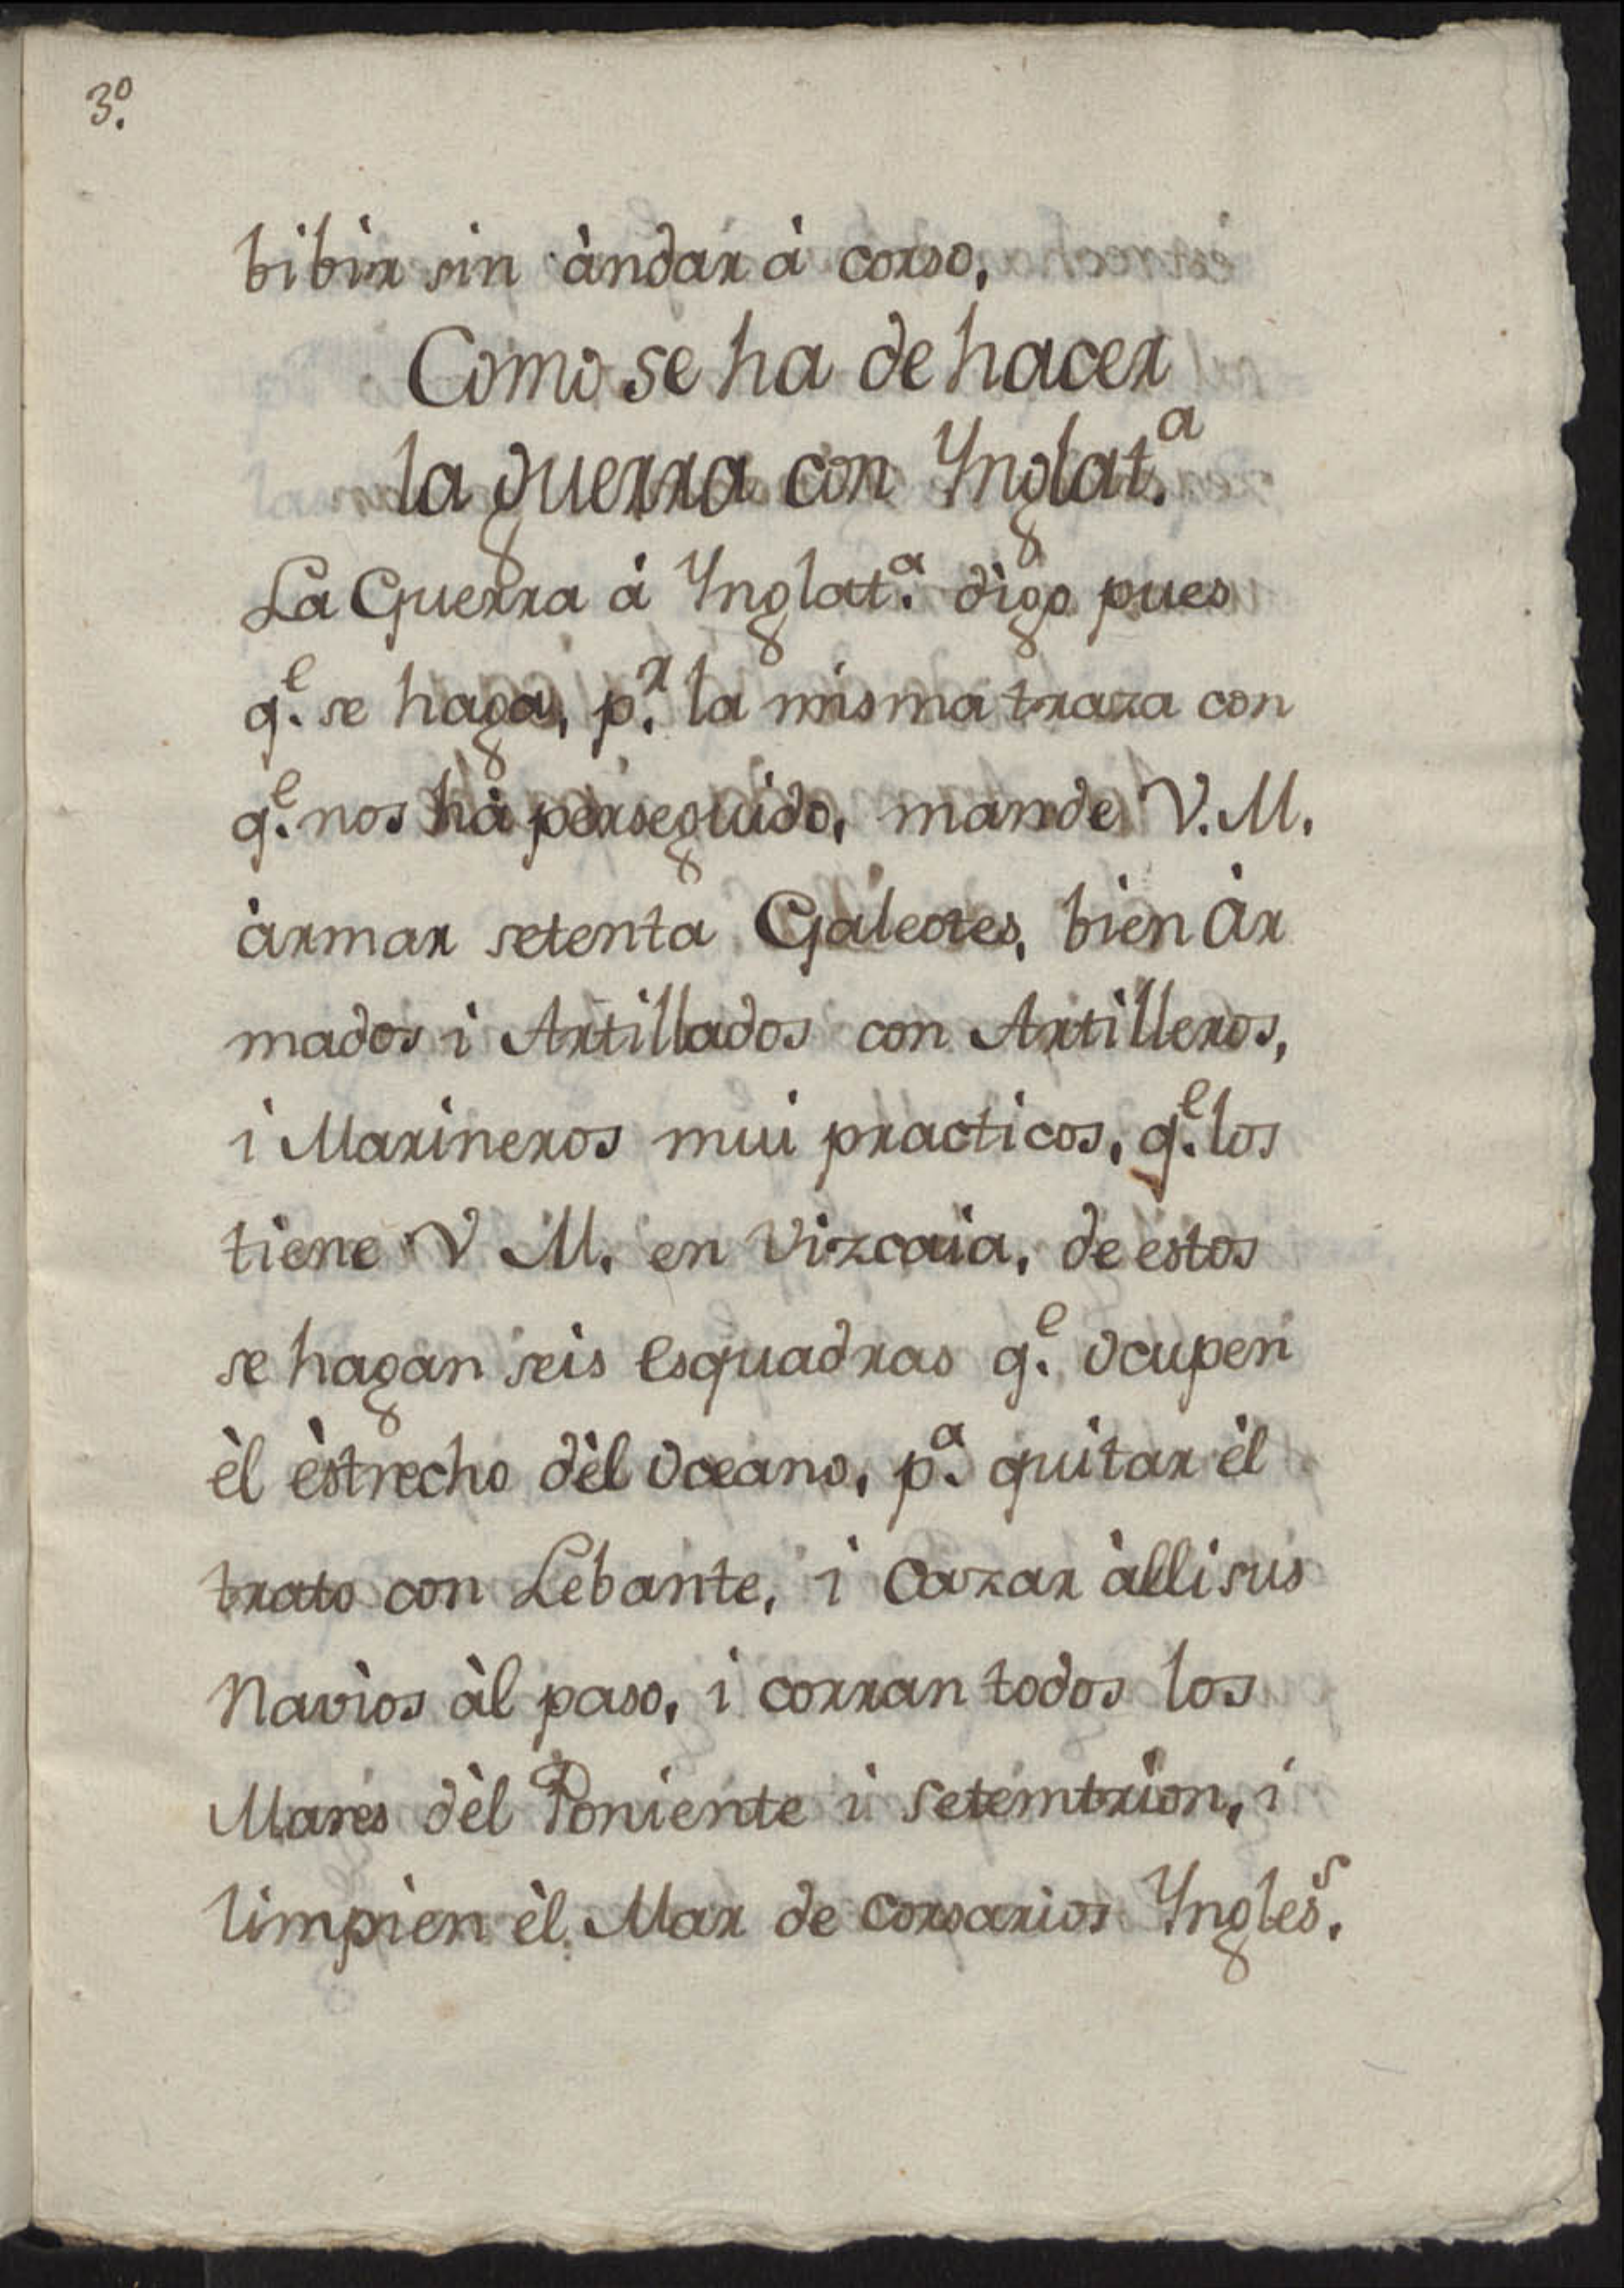 3º.
bibìr sin àndar à corso,
Como se ha de hacer
la guerra con Ynglat.ª
La Guerra á Ynglat.ª digo pues
q.e se haga, p.r la misma traza con
q.e nos hà perseguido, mande V. M.
àrmar setenta Galeotes, bien àr
mados i Artillados con Artilleros,
i Marineros mui practicos, q.e los
tiene V M. en Vizcaia, de estos
se hagan seis esquadras q.e ocupen
èl èstrecho dèl oceano, p.ª quitar èl
trato con Lebante, i cazar àlli sus
Navìos àl paso, i corran todos los
Mares dèl Poniente i setemtrion, i
limpien èl Mar de corsarios Yngles.s